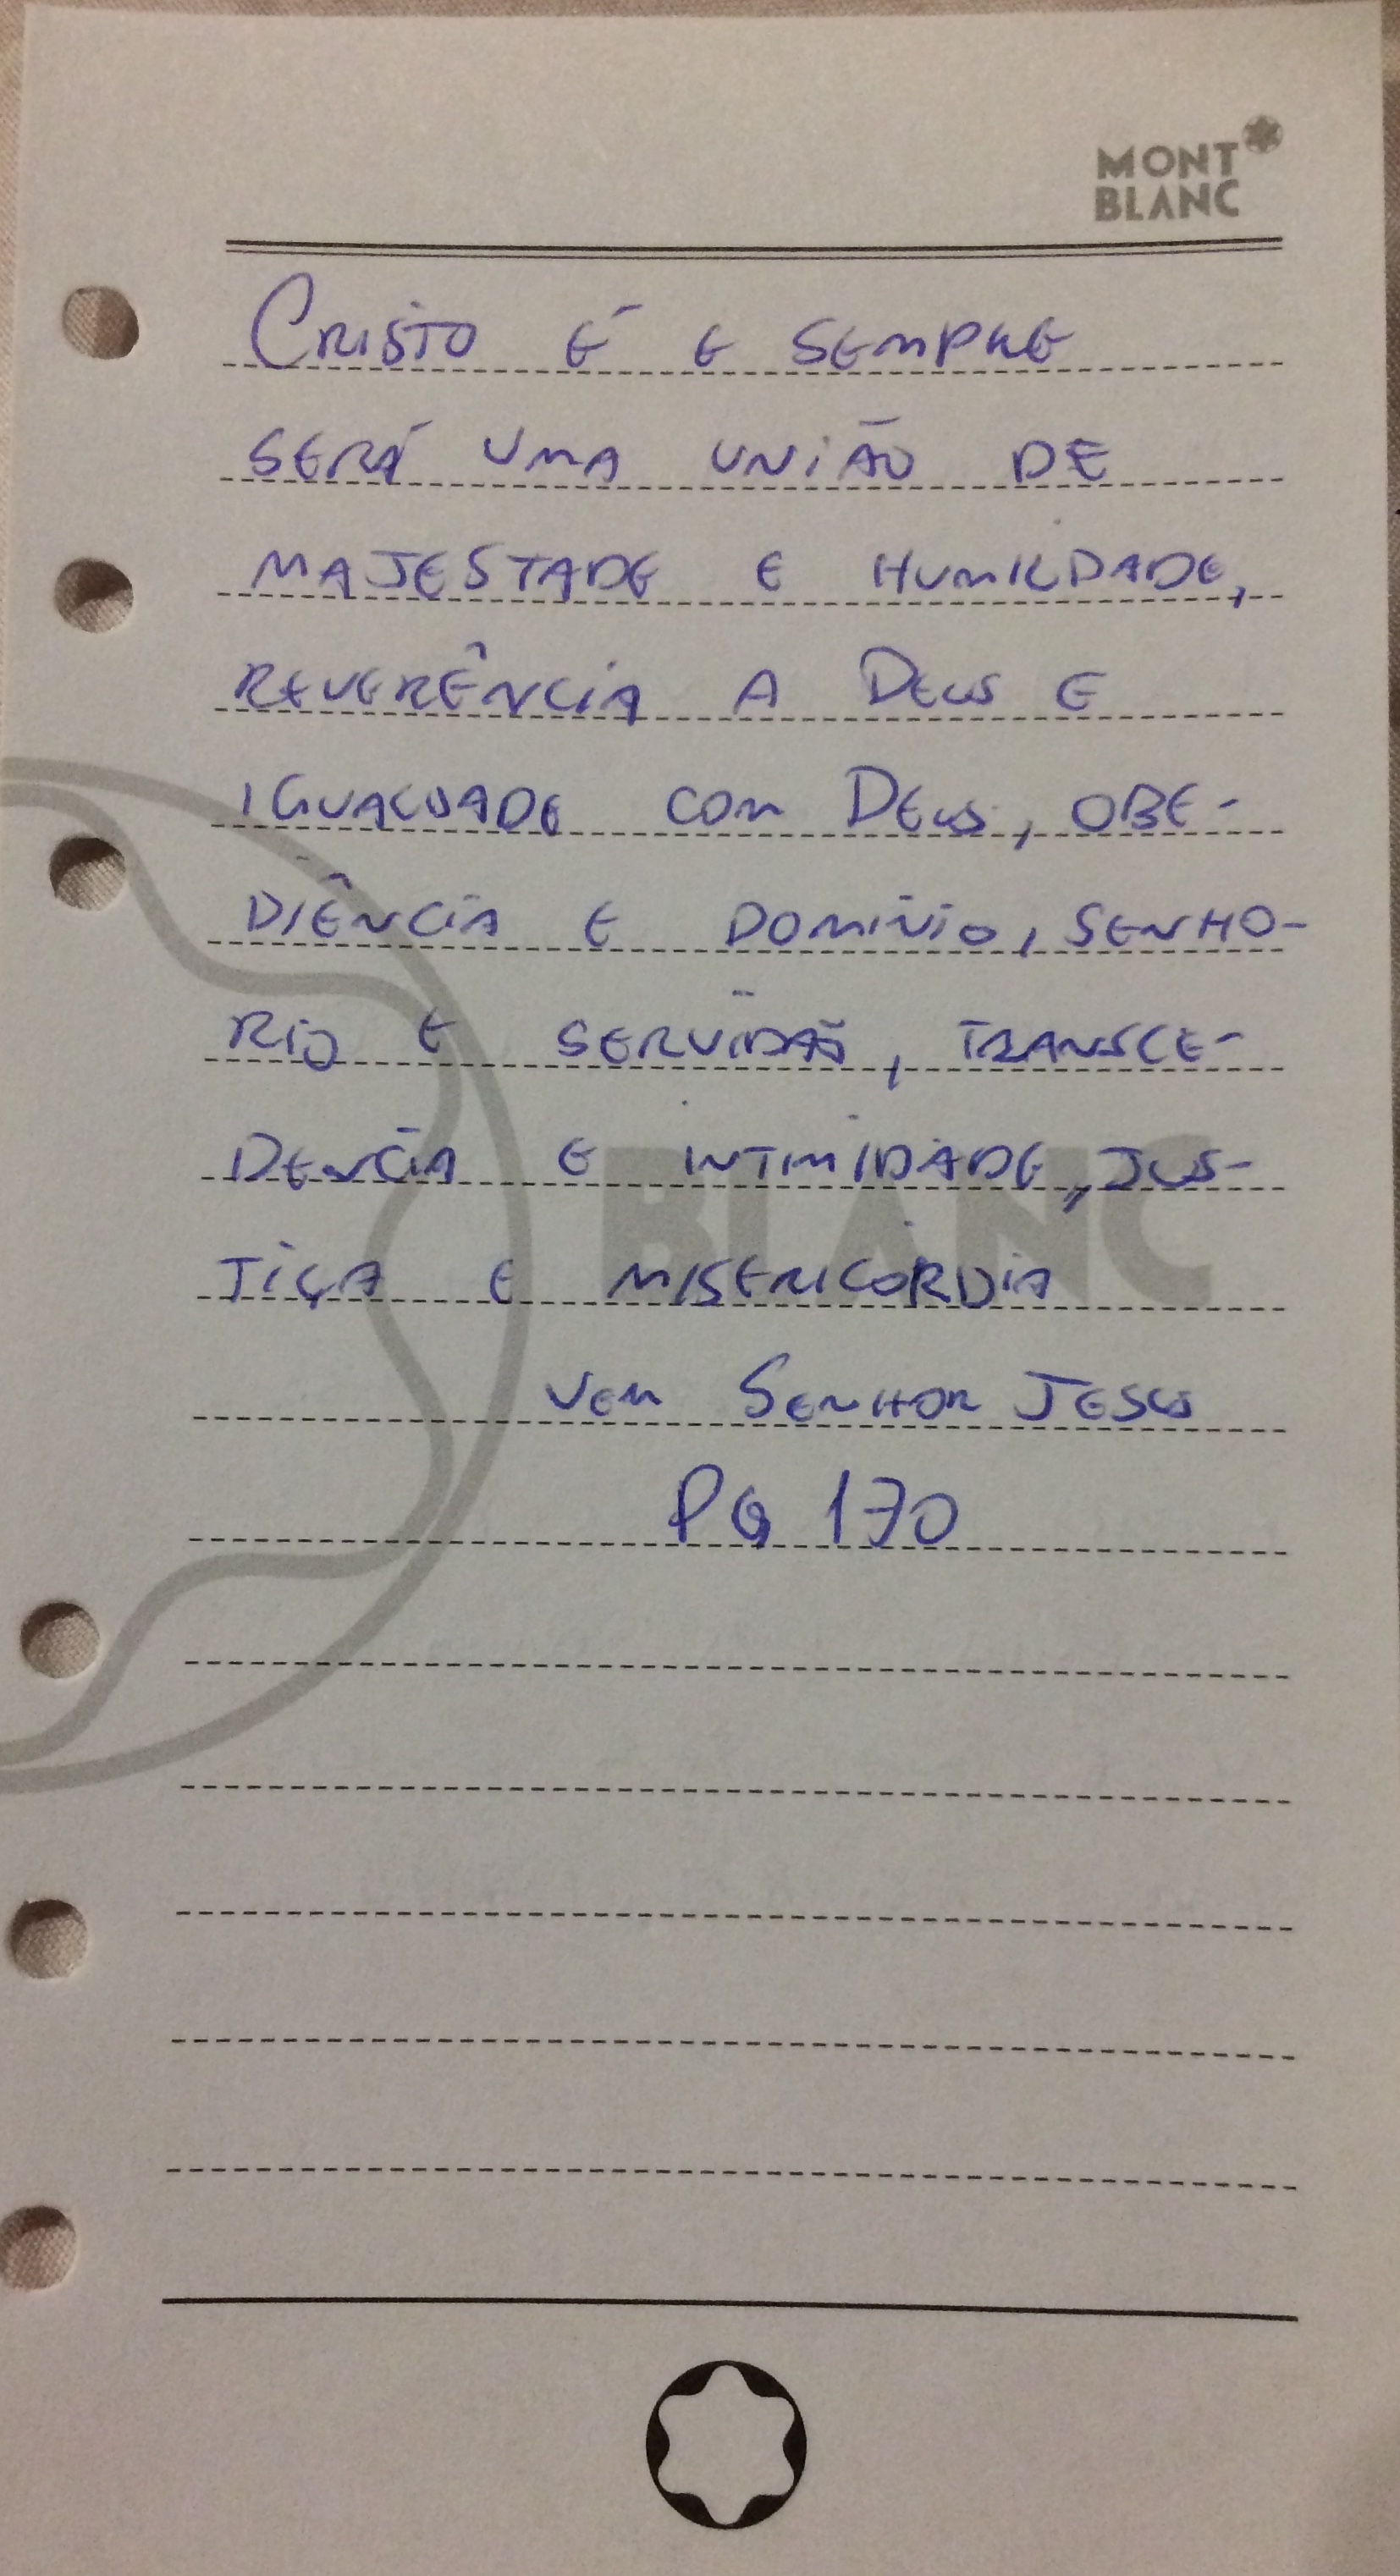 MONT
BLANC
CRISTO É E SEMPRE
SERÁ UMA UNIÃO DE
MAJESTADE E HUMILDADE,
REVERÊNCIA A DEUS E
IGUALDADE COM DEUS, OBE-
DIÊNCIA E DOMINIO, SENHO-
RIO E SERVIDÃO, TRANSCE-
DENCIA E INTIMIDADE, JUS-
TIÇA E MISERICORDIA
VEM SENHOR JESUS
PG 170
BLANC